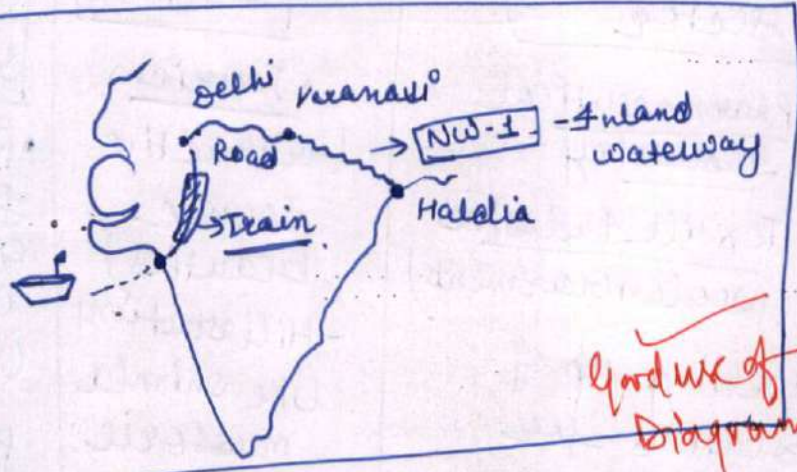 Delhi
Varanasi
Road
→ NW-1 - Inland
waterway
Haldia
→ Train
Good use of
Diagram